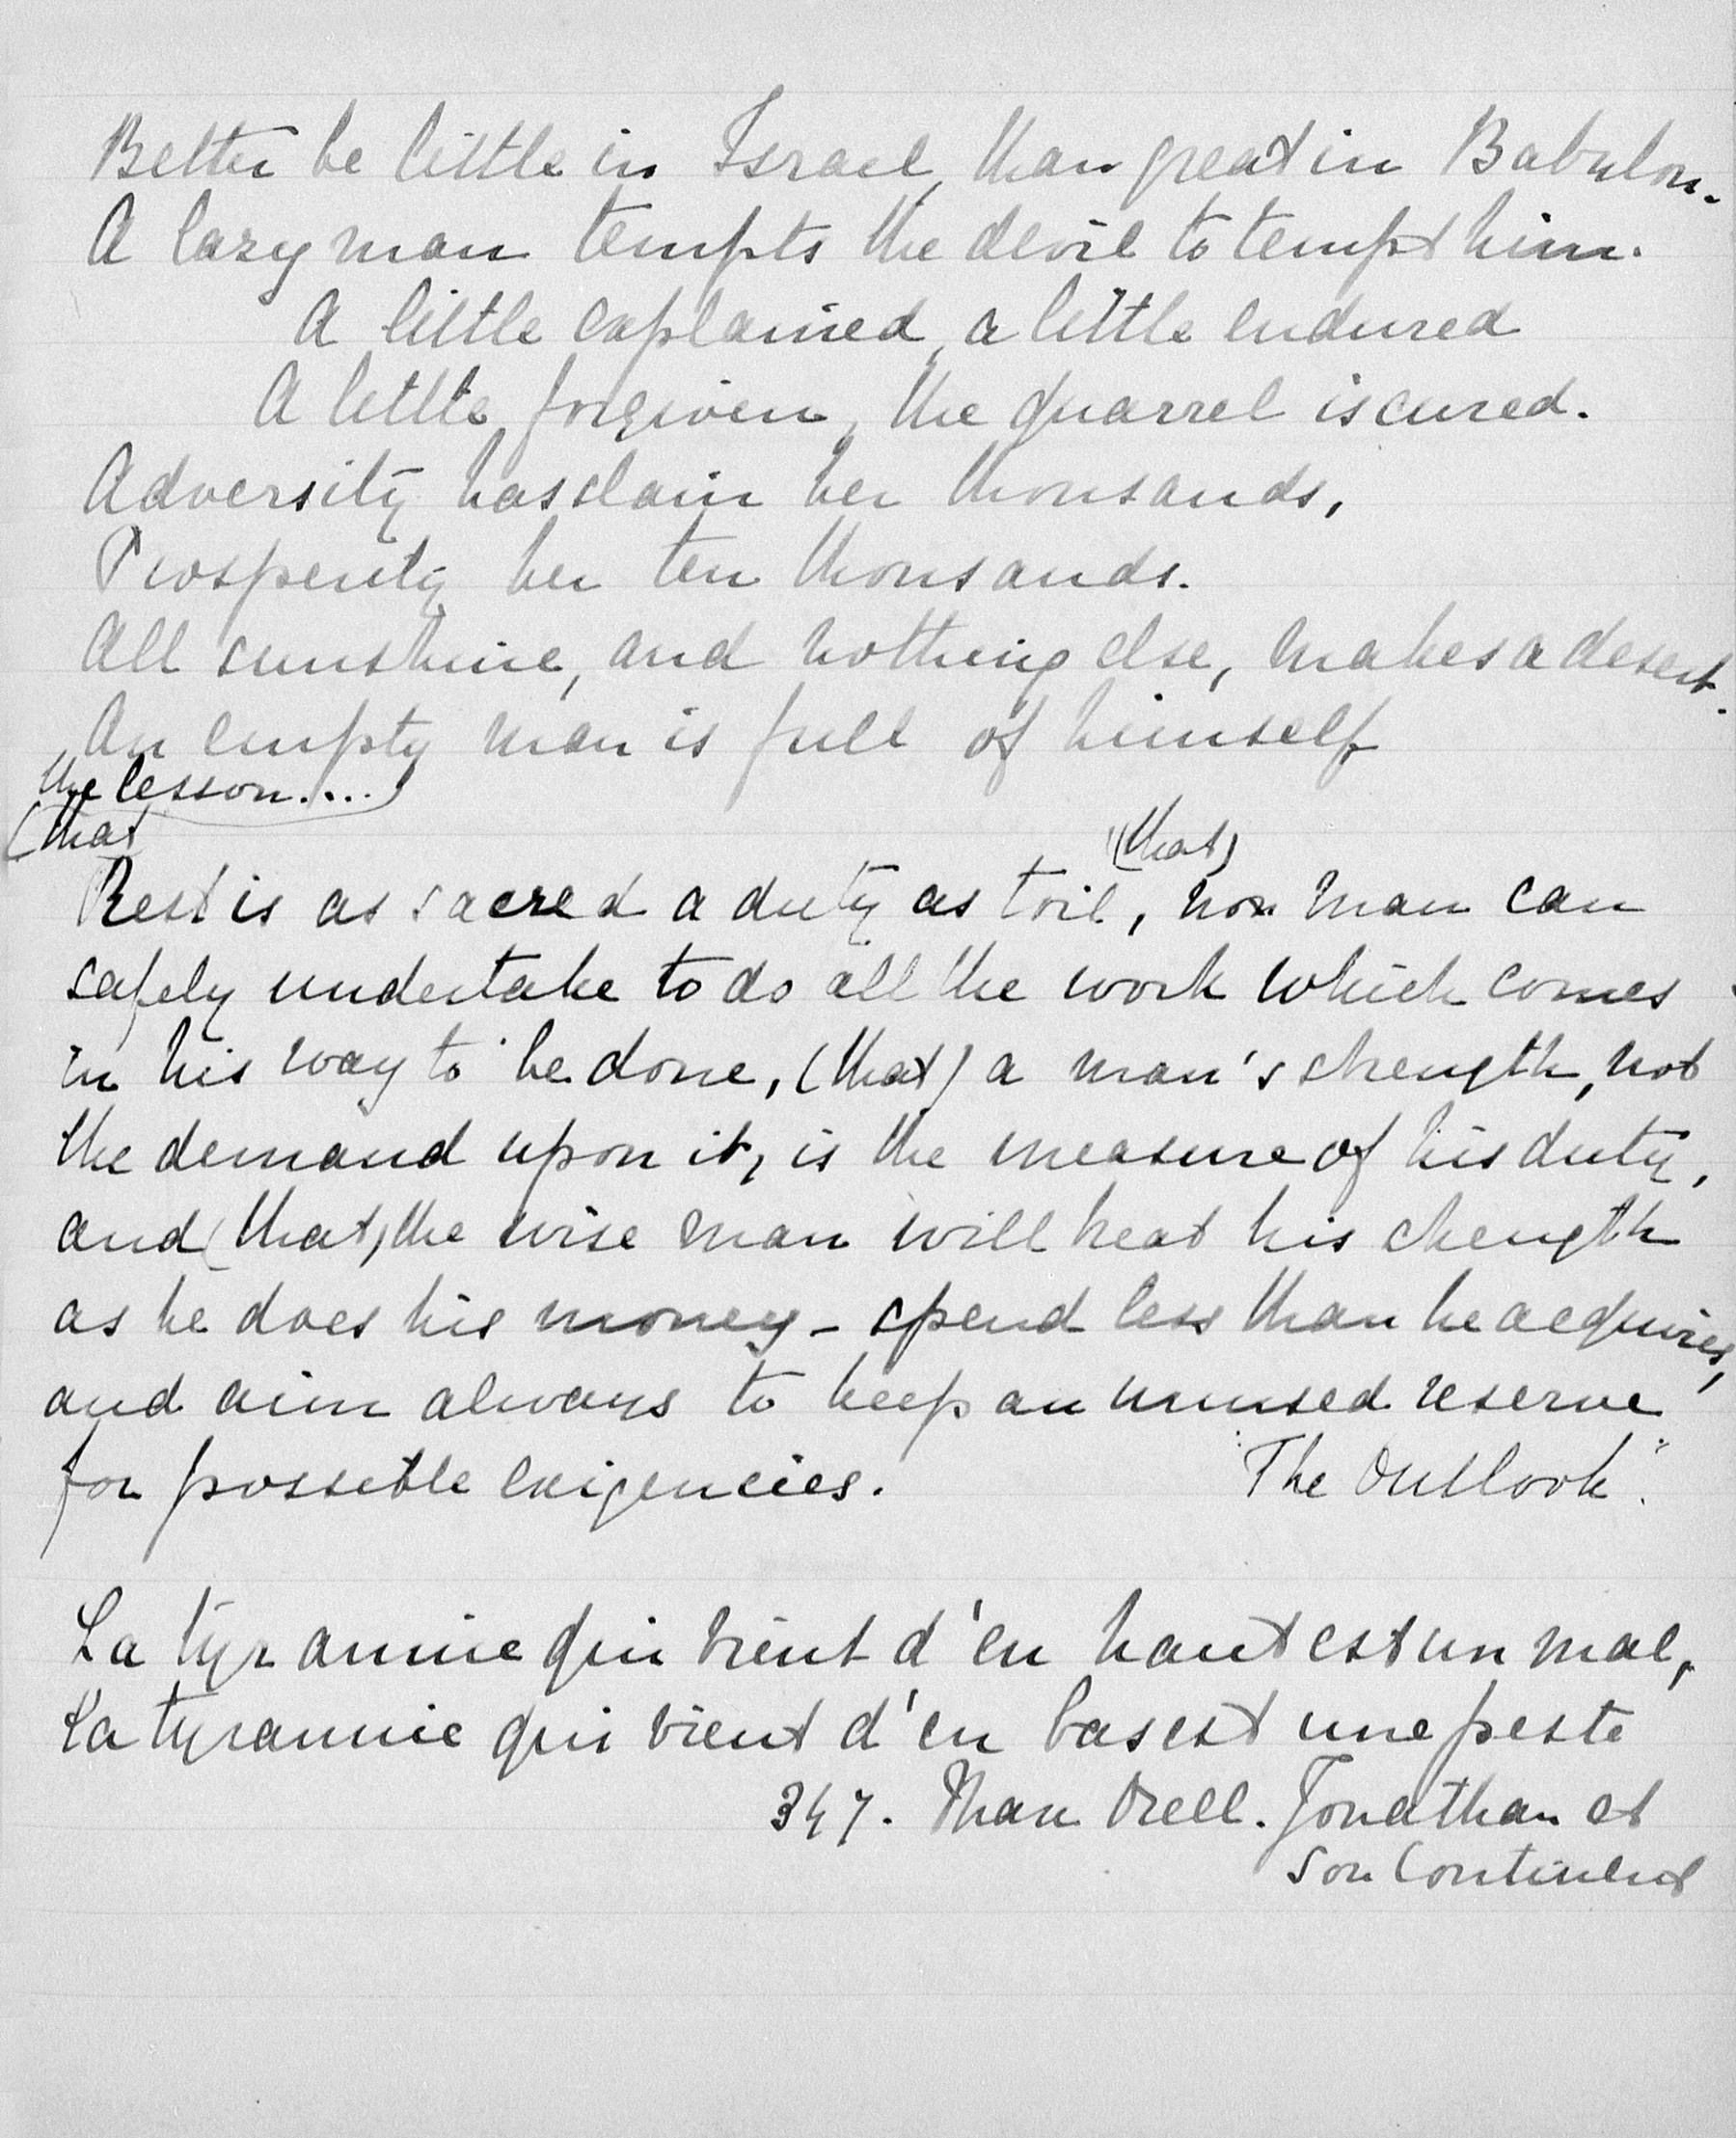 Better be little in Israel, than great in Babylon.
A lazy man tempts the devil to tempt him.
A little explained, a little endured
A little forgiven, the quarrel is cured.
Adversity has slain her thousands,
Prosperity her ten thousands.
All sunshine, and nothing else, makes a desert.
An empty man is full of himself
the lesson....)
(that
(that)
Rest is as sacred a duty as toil, no man can
safely undertake to do all the work which comes
in his way to be done, (that) a man's strength, not
the demand upon it, is the measure of his duty,
and (that) the wise man will treat his strength
as he does his money - spend less than he acquires,
and aim always to keep an unused reserve
for possible exigencies. "The Outlook".
La tyrannie qui vient d'en haut est un mal,
La tyrannie qui vient d'en bas est une peste
347. Max Orell. Jonathan et
son Continent